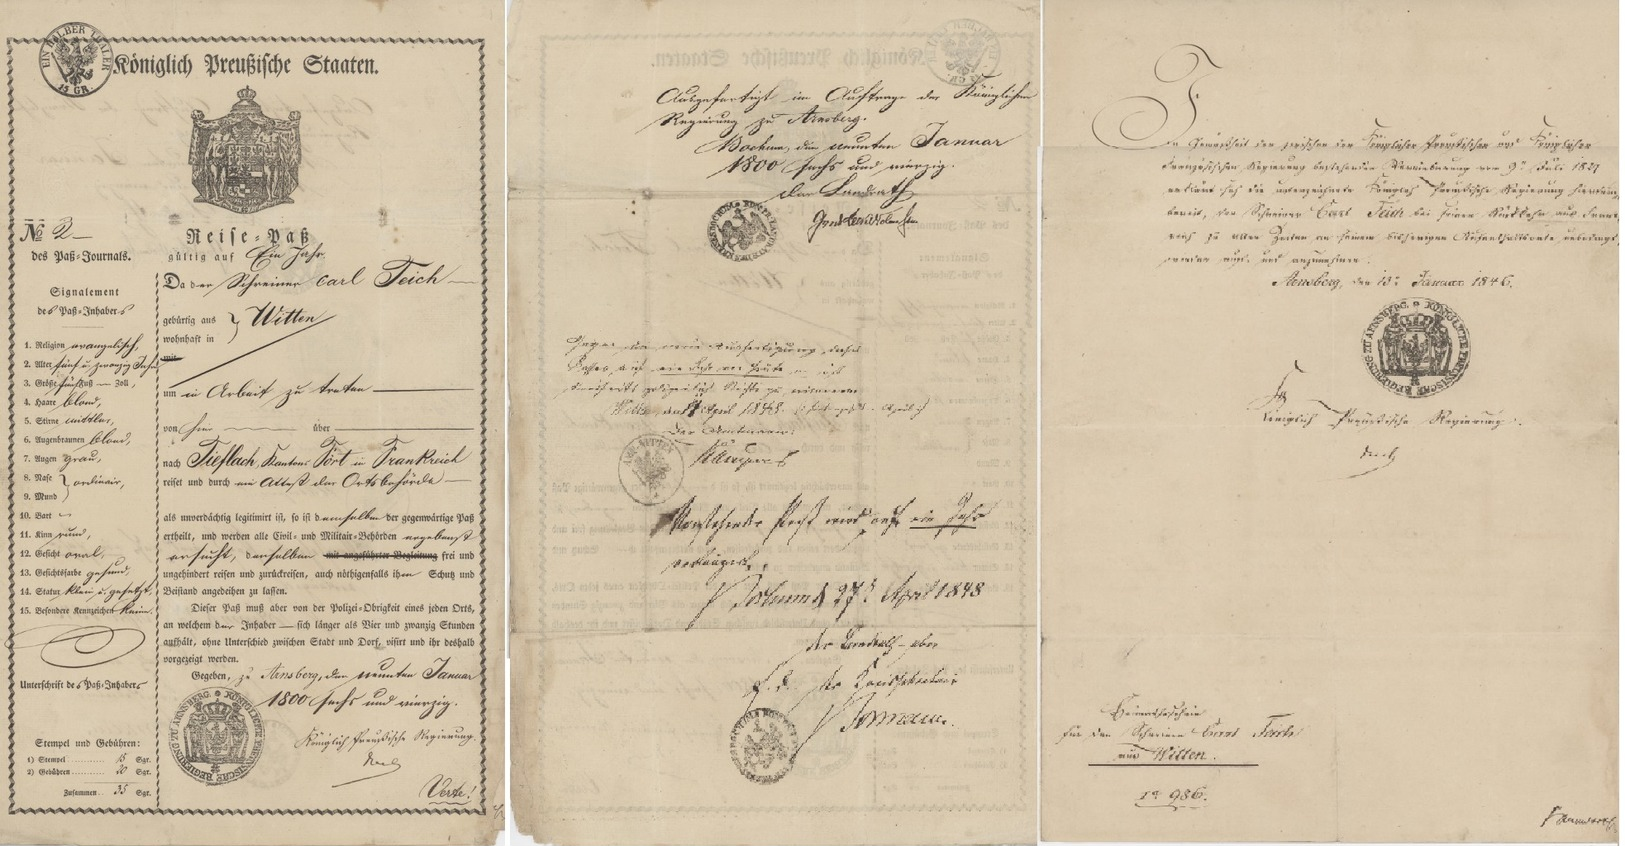 EIN HALBER THALER
15 GR.
Königlich Preußische Staaten.
No 2
des Paß-Journals.
Signalement
des Paß-Inhabers
1. Religion evangelisch,
2. Alter fünf u. zwanzig Jahr,
3. Größe fünf Fuß — Zoll,
4. Haare blond,
5. Stirne mittler,
6. Augenbraunen blond,
7. Augen grau,
8. Nase } ordinair,
9. Mund
10. Bart
11. Kinn rund,
12. Gesicht oval,
13. Gesichtsfarbe gesund,
14. Statur klein u. gesetzt,
15. Besondere Kennzeichen keine.
Unterschrift des Paß-Inhabers
Stempel und Gebühren:
1) Stempel 15 Sgr.
2) Gebühren 20 Sgr.
Zusammen 35 Sgr.
Reise-Paß
gültig auf Ein Jahr.
Da der Schreiner Carl Teich
gebürtig aus } Witten
wohnhaft in
mit
um in Arbeit zu treten
von hier über
nach Tieflach, Kantons Tört in Frankreich
reiset und durch ein Attest der Ortsbehörde
als unverdächtig legitimirt ist, so ist demselben der gegenwärtige Paß
ertheilt, und werden alle Civil- und Militair-Behörden ergebenst
ersucht, denselben mit angeführter Begleitung frei und
ungehindert reisen und zurückreisen, auch nöthigenfalls ihm Schutz und
Beistand angedeihen zu lassen.
Dieser Paß muß aber von der Polizei-Obrigkeit eines jeden Orts,
an welchem der Inhaber — sich länger als Vier und zwanzig Stunden
aufhält, ohne Unterschied zwischen Stadt und Dorf, visirt und ihr deshalb
vorgezeigt werden.
Gegeben, zu Arnsberg, den neunten Januar
1800 sechs und vierzig.
Königlich Preußische Regierung.
KÖNIGLICHE PREUSSISCHE REGIERUNG ZU ARNSBERG.
Verte!
Ausgefertigt im Auftrage der Königlichen
Regierung zu Arnsberg.
Bochum, den neunten Januar
1800 sechs und vierzig.
Der Landrath
Witten, den April 1848
Der Amtmann
AMT WITTEN
Vorstehender Paß wird auf ein Jahr
verlängert.
Bochum d 27t April 1848
Der Landrath
der Kreissekretair
In Gemäßheit der zwischen der Königlich Preußischen und Königlich
Französischen Regierung bestehenden Vereinbarung vom 9t Juli 1827
erklärt sich die unterzeichnete Königlich Preußische Regierung hierdurch
bereit, den Schreiner Carl Teich bei seiner Rückkehr aus Frank-
reich zu allen Zeiten an seinem bisherigen Aufenthaltsorte unbedingt
wieder auf- und anzunehmen.
Arnsberg, den 13t Januar 1846.
KÖNIGLICHE PREUSSISCHE REGIERUNG ZU ARNSBERG.
Königlich Preußische Regierung.
Heimathschein
für den Schreiner Carl Teich
aus Witten.
986.